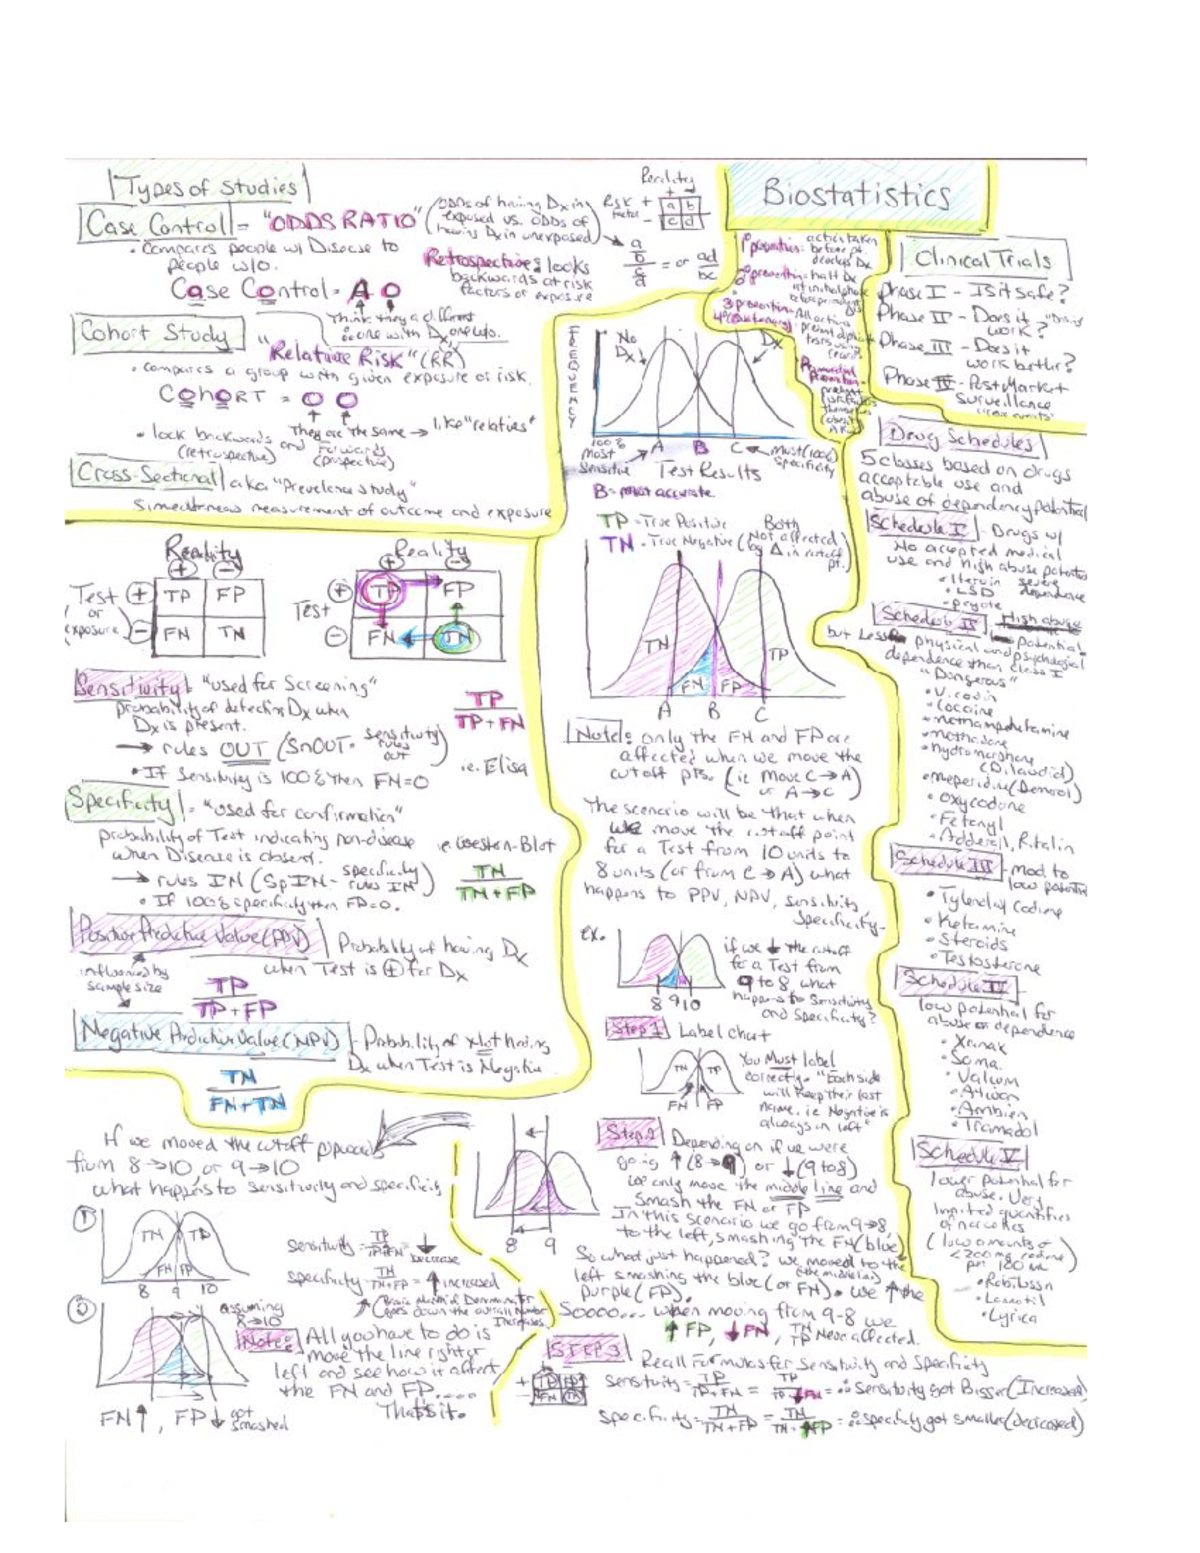 Types of Studies
Case Control = "ODDS RATIO" (odds of having Dx in exposed vs. odds of having Dx in unexposed)
• Compares people w/ Disease to people w/o.
Retrospective: looks backwards at risk factors or exposure
Case Control = A O
Think they a different
∴ one with Dx, one w/o.
Reality
+ -
Risk Factor + a b
- c d
a/b / c/d = or ad/bc
Cohort Study
"Relative Risk" (RR)
• compares a group with given exposure or risk.
COHORT = O O
They are the same → like "relaties"
• look backwards and Forwards
(retrospective) (prospective)
Cross-Sectional aka "Prevelence study"
Simeeltaneous measurement of outcome and exposure
Biostatistics
1° prevention = action taken before pt develops Dx
Clinical Trials
Phase I - Is it safe?
Phase II - Does it work?
Phase III - Does it work better?
Phase IV - Post Market Surveillance
FREQUENCY
No Dx
Dx
A B C
100% Most Sensitive
Most (100%) Specificity
Test Results
B = most accurate
TP = True Positive
TN = True Negative (Both Not affected by Δ in cutoff pt.)
TN FN FP TP
A B C
Note: only the FN and FP are
affected when we move the
cutoff pts. (ie move C → A)
or A → C
The scenario will be that when
we move the cutoff point
for a Test from 10 units to
8 units (or from C → A) what
happens to PPV, NPV, sensitivity,
Specificity.
Reality
+ -
Test or exposure + TP FP
- FN TN
Reality
+ -
Test + TP FP
- FN TN
Sensitivity = "used for Screening"
probability of detecting Dx when
Dx is present.
TP / TP + FN
→ rules OUT (SnOUT = sensitivity rules out)
i.e. Elisa
• If sensitivity is 100% then FN=0
Specificity = "used for confirmation"
probability of Test indicating non-disease
when Disease is absent.
i.e. Western-Blot
→ rules IN (SpIN - specificity rules IN)
TN / TN + FP
• If 100% specificity then FP=0.
Positive Predictive Value (PPV) Probability of having Dx
when Test is ⊕ for Dx
influenced by sample size
TP / TP + FP
Negative Predictive Value (NPV) - Probability of not having
Dx when Test is Negative.
TN / FN + TN
If we moved the cutoff upwards
from 8→10, or 9→10
what happens to sensitivity and specificity
①
TN TP
FN FP
8 9 10
Sensitivity = TP / TP+FN = ↓ Decrease
specificity = TN / TN+FP = ↑ increased
②
assuming 8→10
Note: All you have to do is
move the line right or
left and see how it affect
the FN and FP....
Thats it.
FN↑, FP↓ got smashed
ex.
8 9 10
if we ↓ the cutoff
for a Test from
9 to 8 what
happens to Sensitivity
and Specificity?
Step 1 Label chart
TN TP
FN FP
You Must label
correctly. "Each side
will keep their last
name. ie Negative is
always on left"
8 9
Step 2 Depending on if we were
going ↑ (8→9) or ↓ (9 to 8)
we only move the middle line and
smash the FN or FP
In this scenario we go from 9→8,
to the left, smashing the FN (blue)
So what just happened? we moved to the
left smashing the blue (or FN). We ↑ the
purple (FP).
Soooo... when moving from 9-8 we
↑FP, ↓FN, TN TP Never affected.
STEP 3 Recall Formulas for Sensitivity and Specificity
+ TP FP
- FN TN
sensitivity = TP / TP+FN = TP / TP+↓FN = ∴ Sensitivity got Bigger (Increased)
specificity = TN / TN+FP = TN / TN+↑FP = ∴ specificity got smaller (decreased)
Drug Schedules
5 classes based on drugs
acceptable use and
abuse of dependency potential
Schedule I - Drugs w/
No accepted medical
use and high abuse potential
• Heroin severe
• LSD dependence
• peyote
Schedule II High abuse
potential
but Less physical and psychological
dependence than class I
"Dangerous"
• Vicodin
• Cocaine
• methamphetamine
• methadone
• hydromorphone
(Dilaudid)
• meperidine (Demerol)
• oxycodone
• Fetanyl
• Adderall, Ritalin
Schedule III - mod to
low potential
• Tylenol w/ codine
• Ketamine
• Steroids
• Testosterone
Schedule IV
low potential for
abuse or dependence
• Xanax
• Soma
• Valium
• Ativan
• Ambien
• Tramadol
Schedule V
lower potential for
abuse. Very
limited quantities
of narcotics
(low amounts of
<200 mg codine
per 100 mL)
• Robitussin
• Lomotil
• Lyrica